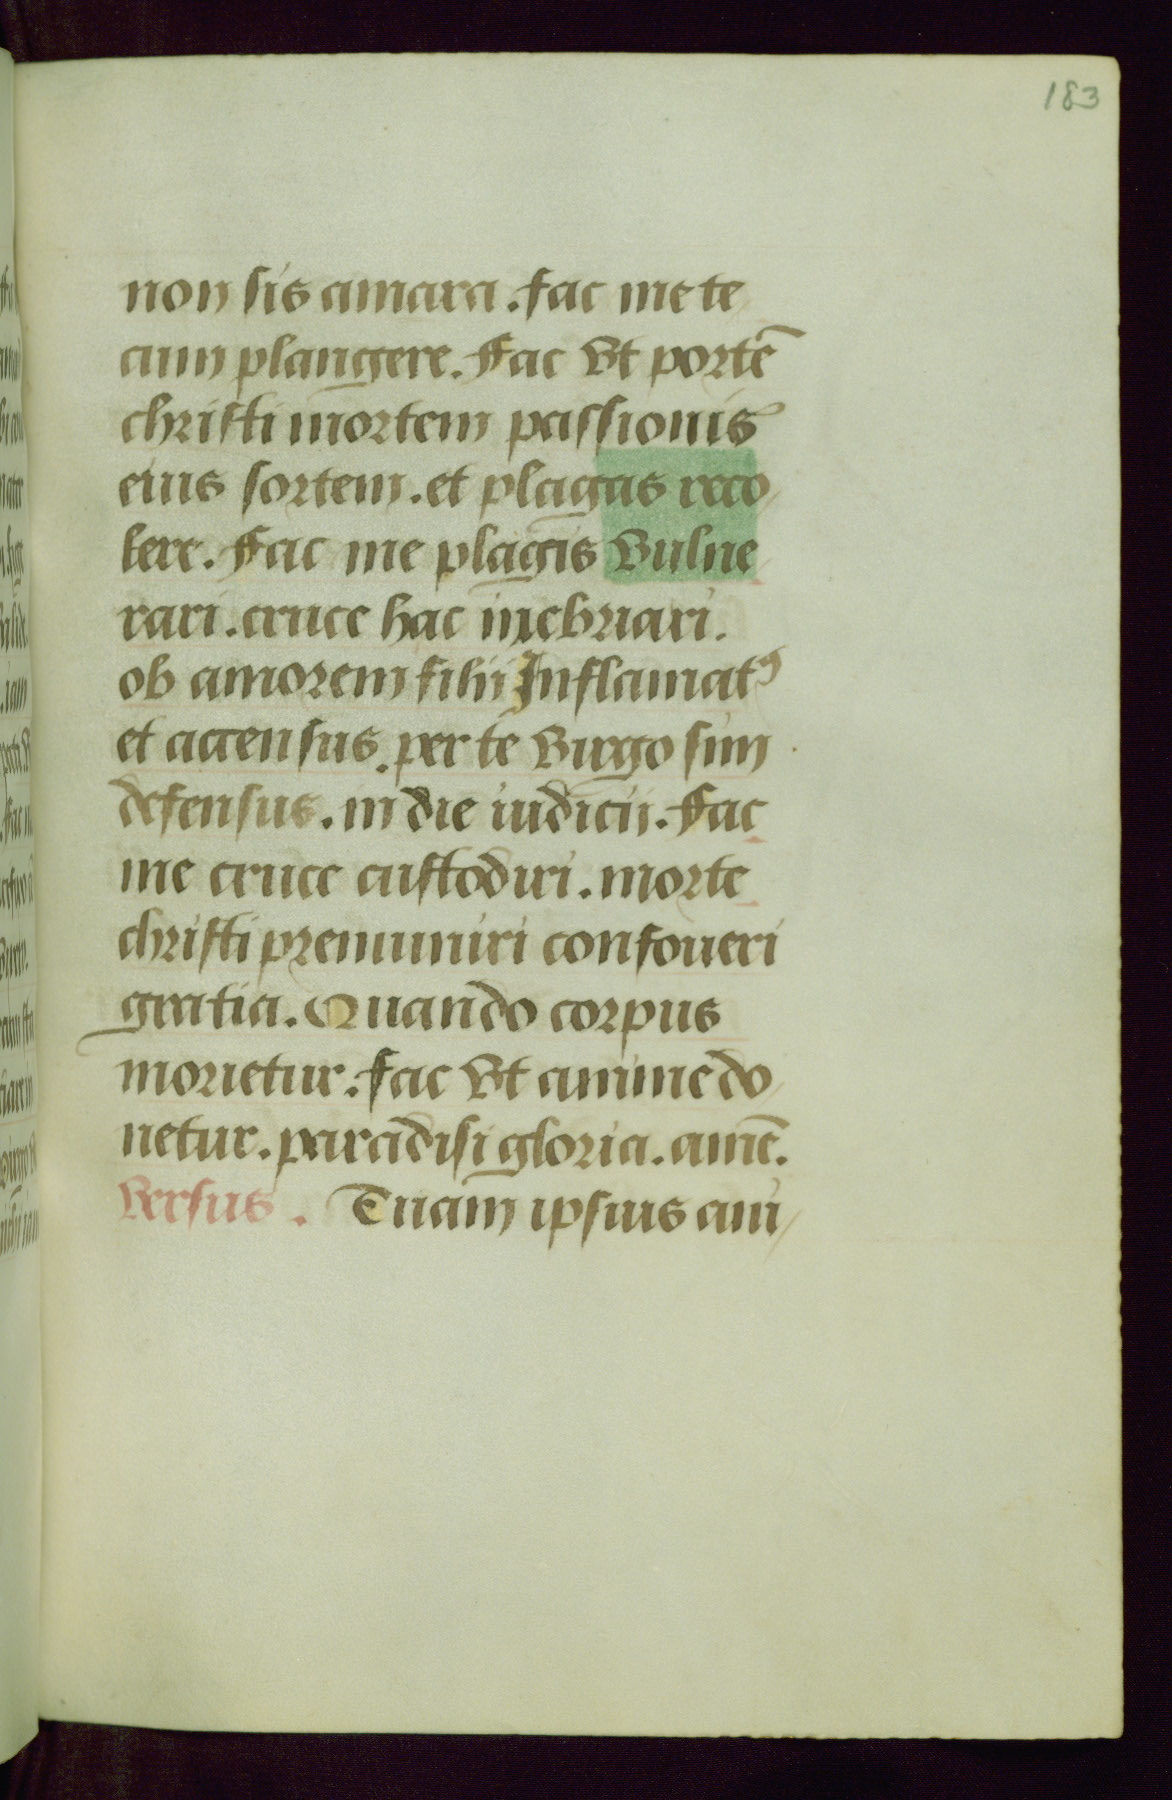 183
non sis amara. fac me te
cum plangere. Fac vt portē
christi mortem passionis
eius sortem. et plagas reco
lere. Fac me plagis vulne
rari. cruce hac inebriari.
ob amorem filii Inflamatꝰ
et accensus. per te virgo sim
defensus. in die iudicii. Fac
me cruce custodiri. morte
christi premuniri confoueri
gratia. Quando corpus
morietur. fac vt anime do
netur. paradisi gloria. amē.
versus. Tuam ipsius ani